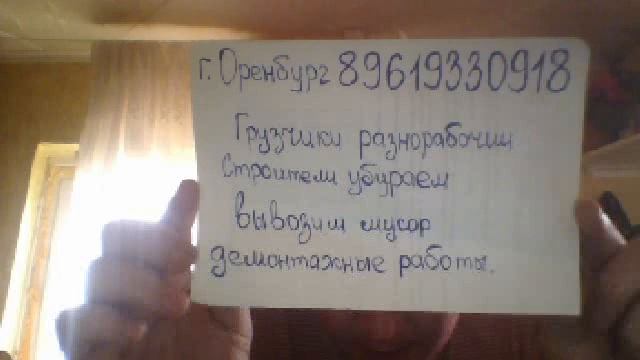 г. Оренбург 89619330918
Грузчики разнорабочии
Строители убираем
вывозим мусор
демонтажные работы.